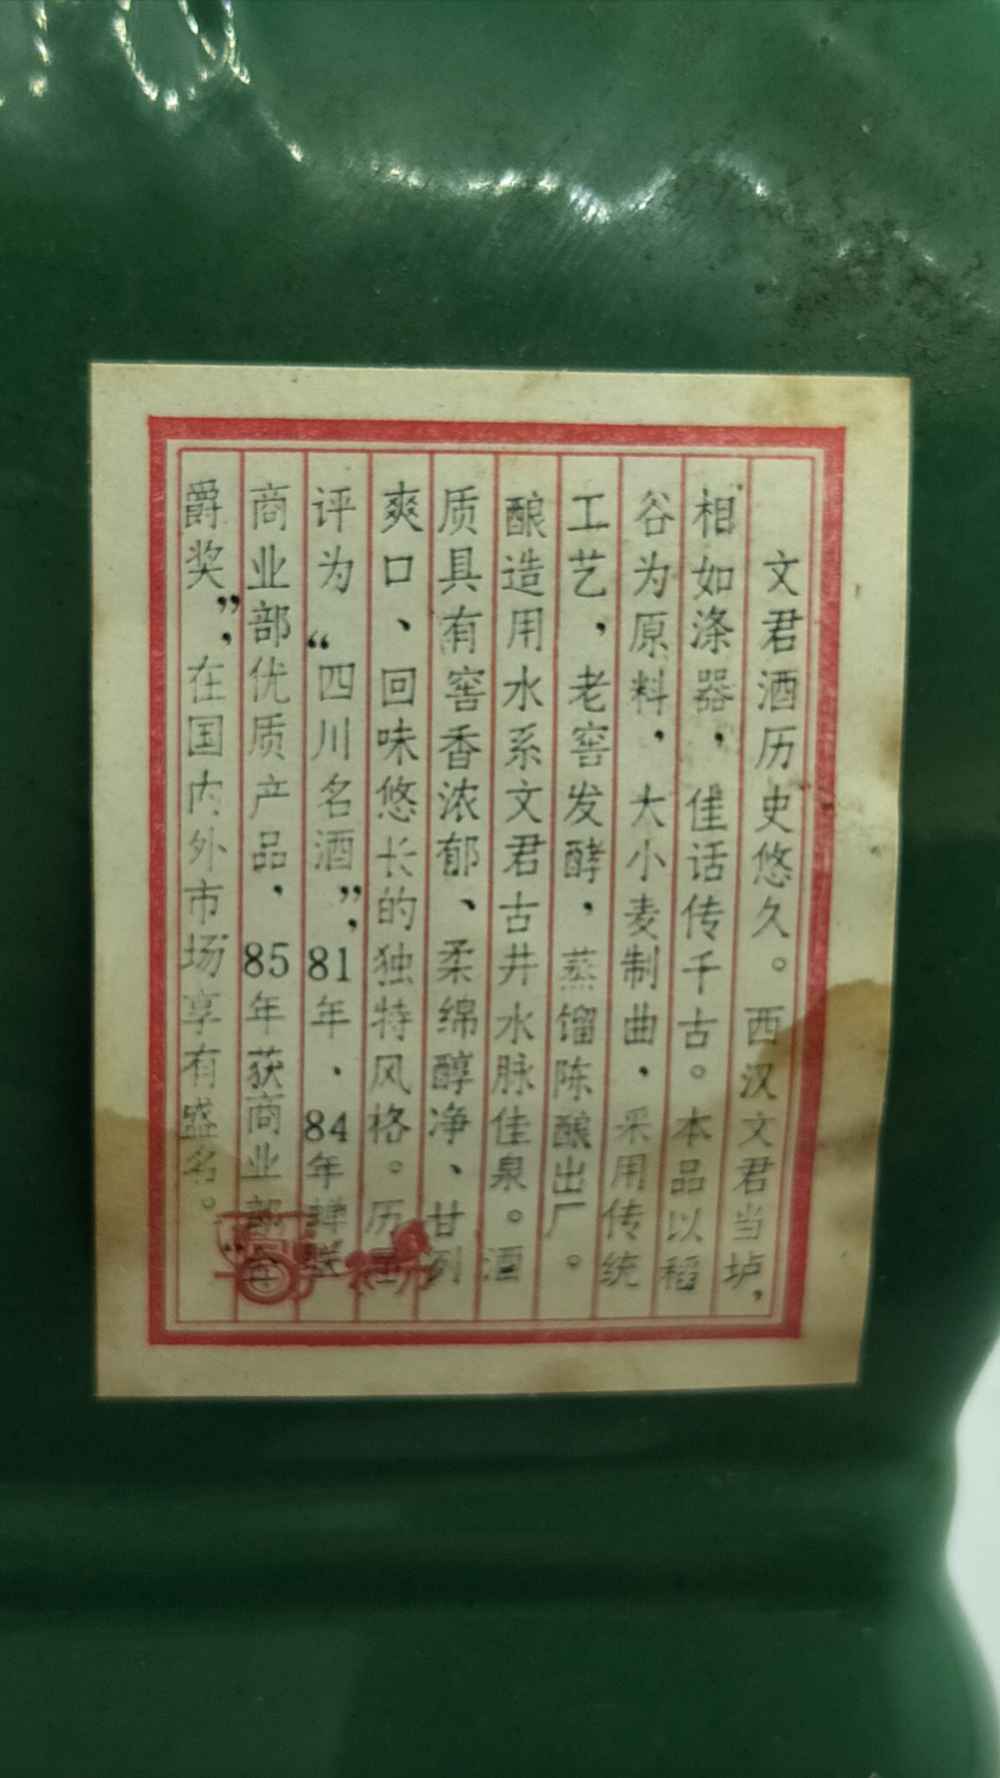 文君酒历史悠久。西汉文君当垆，
相如涤器，佳话传千古。本品以稻
谷为原料，大小麦制曲，采用传统
工艺，老窖发酵，蒸馏陈酿出厂。
酿造用水系文君古井水脉佳泉。酒
质具有窖香浓郁、柔绵醇净、甘冽
爽口、回味悠长的独特风格。历届
评为“四川名酒”，81年、84年蝉联
商业部优质产品，85年获商业部“金
爵奖”，在国内外市场享有盛名。